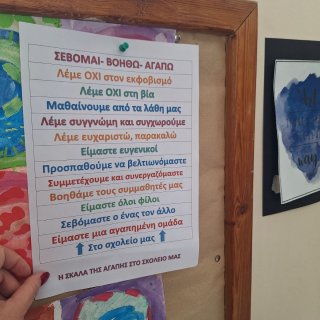 ΣΕΒΟΜΑΙ- ΒΟΗΘΩ- ΑΓΑΠΩ
Λέμε ΟΧΙ στον εκφοβισμό
Λέμε ΟΧΙ στη βία
Μαθαίνουμε από τα λάθη μας
Λέμε συγγνώμη και συγχωρούμε
Λέμε ευχαριστώ, παρακαλώ
Είμαστε ευγενικοί
Προσπαθούμε να βελτιωνόμαστε
Συμμετέχουμε και συνεργαζόμαστε
Βοηθάμε τους συμμαθητές μας
Είμαστε όλοι φίλοι
Σεβόμαστε ο ένας τον άλλο
Είμαστε μια αγαπημένη ομάδα
Στο σχολείο μας
Η ΣΚΑΛΑ ΤΗΣ ΑΓΑΠΗΣ ΣΤΟ ΣΧΟΛΕΙΟ ΜΑΣ